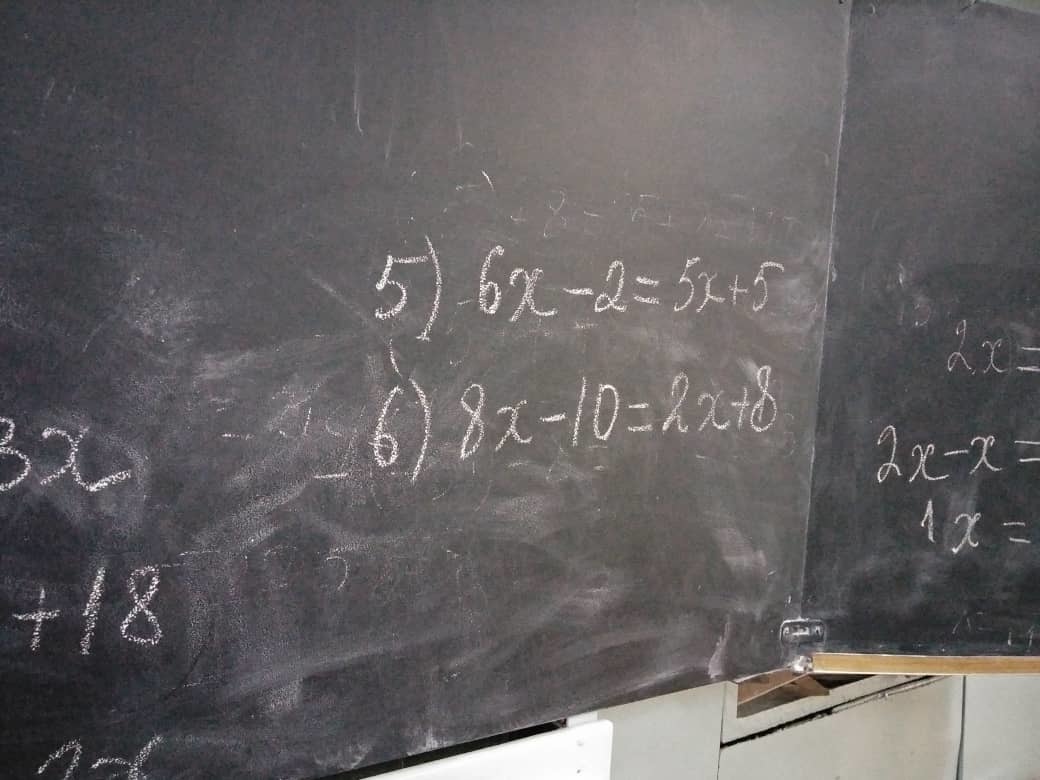 5) 6x-2=5x+5
6) 8x-10=2x+8
3x
+18
2x=
2x-x=
1x=